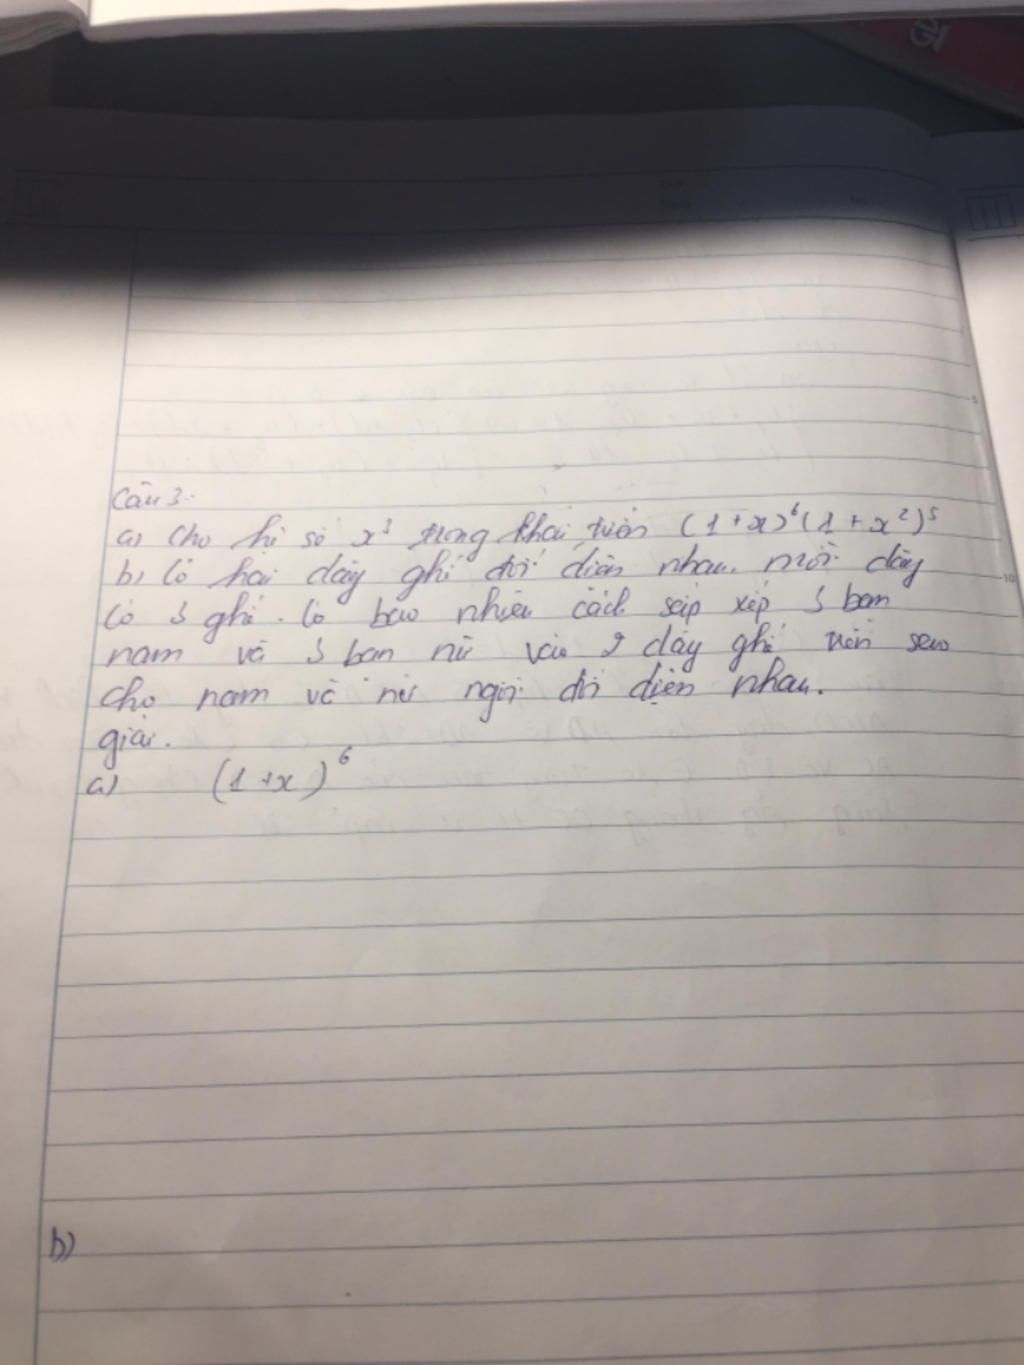 Câu 3.
a) Cho hệ số x³ trong khai triển (1+x)⁶(1+x²)⁵
b) Có hai dãy ghế đối diện nhau. mỗi dãy
có 5 ghế. Có bao nhiêu cách sắp xếp 5 bạn
nam và 5 bạn nữ vào 2 dãy ghế trên sao
cho nam và nữ ngồi đối diện nhau.
giải.
a) (1+x)⁶
b)